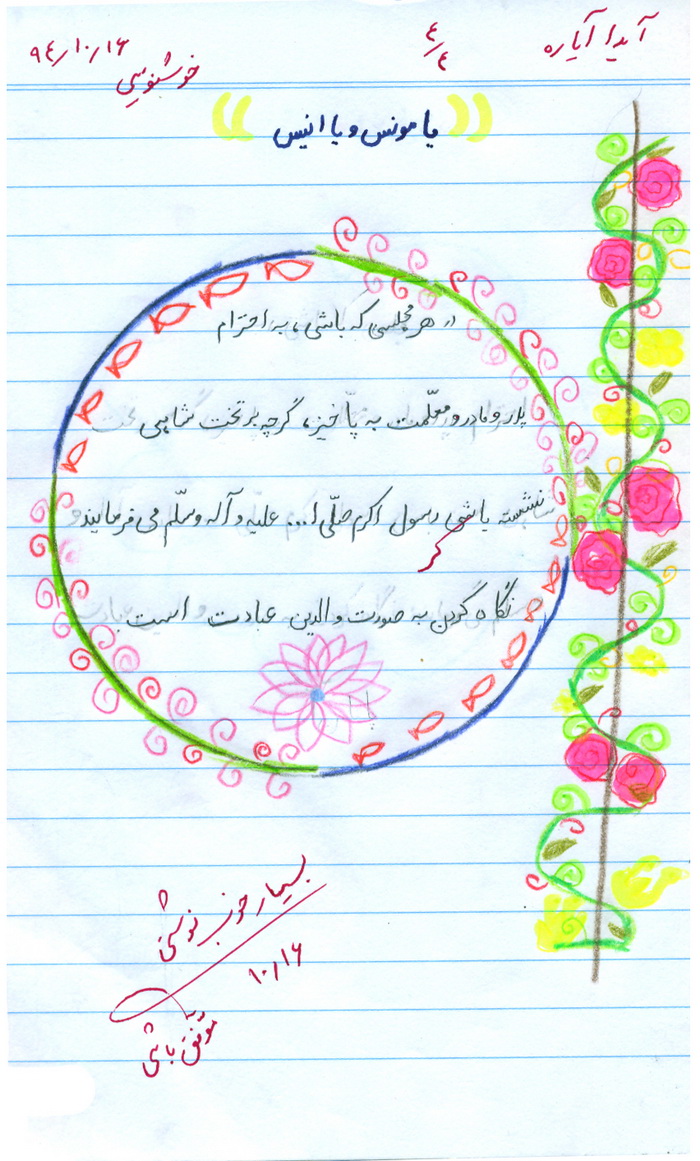 آیدا آیاره
۴/۴
۹۴/۱۰/۱۶
خوشنویسی
«یا مونس و یا انیس»
در هر مجلسی که باشی، به احترام
پدر و مادر و معلّمت به پا خیز، گرچه بر تخت شاهی
نشسته باشی رسول اکرم صلّی ا... علیه و آله وسلّم می فرمایند
نگاه کردن به صورت والدین عبادت است
کر
بسیار خوب نوشتی
۱۰/۱۶
موفق باشی